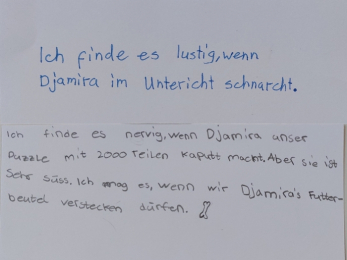 Ich finde es lustig, wenn
Djamira im Untericht schnarcht.
Ich finde es nervig, wenn Djamira unser
Puzzle mit 2000 Teilen kaputt macht. Aber sie ist
Sehr süss. Ich mag es, wenn wir Djamira's Futter-
beutel verstecken dürfen.